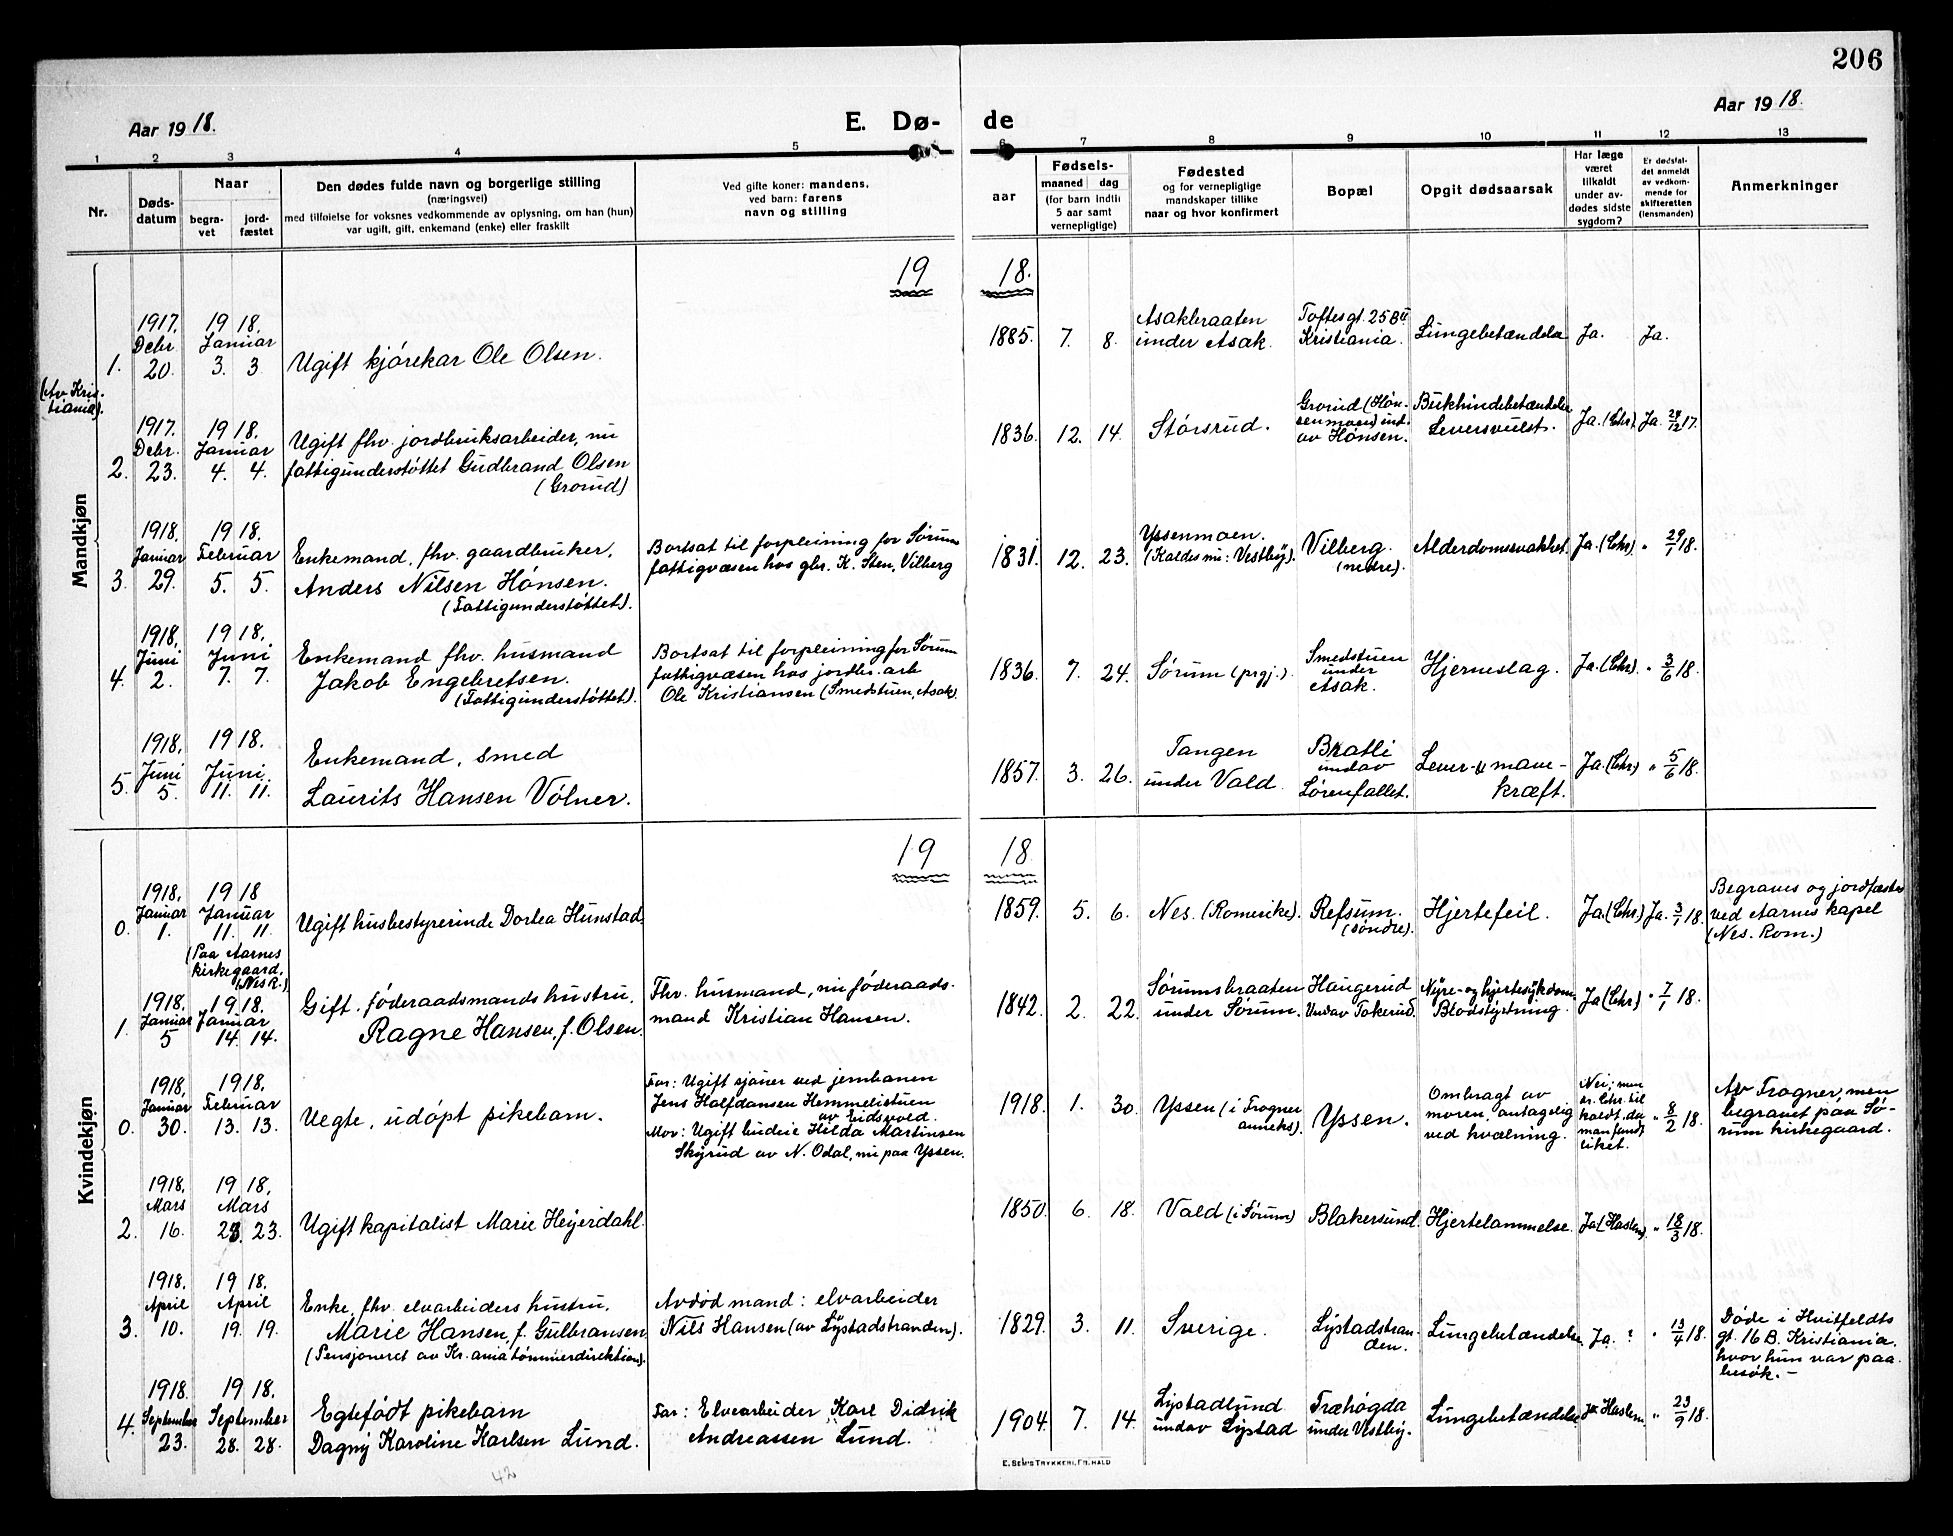 206
Aar 1918.
E. Dø-
de
Aar 1918.
1 2 3 4 5 6 7 8 9 10 11 12 13
Nr.
Døds-
datum
Naar
begra-
vet
jord-
fæstet
Den dødes fulde navn og borgerlige stilling
(næringsvei)
med tilføielse for voksnes vedkommende av oplysning, om han (hun)
var ugift, gift, enkemand (enke) eller fraskilt
Ved gifte koner: mandens,
ved barn: farens
navn og stilling
Fødsels-
aar
maaned dag
(for barn indtil
5 aar samt
vernepligtige)
Fødested
og for vernepligtige
mandskaper tillike
naar og hvor konfirmert
Bopæl
Opgit dødsaarsak
Har læge
været
tilkaldt
under av-
dødes sidste
sygdom?
Er dødsfal-
det anmeldt
av vedkom-
mende for
skifteretten
(lensmanden)
Anmerkninger
Mandkjøn
19 18.
1.
(Av Kris-
tiania).
1917.
Debr.
20.
1918.
Januar
3. 3
Ugift kjørekar Ole Olsen.
1885. 7. 8.
Asakbraaten
under Asak.
Toftesgt. 25 B II
Kristiania.
Lungebetændelse
Ja. Ja.
2.
1917.
Debr.
23.
1918.
Januar
4. 4.
Ugift fhv. jordbruksarbeider, nu
fattigunderstøttet Gudbrand Olsen
(Grorud)
1836. 12. 14.
Størsrud.
Grorud (Høn-
senmoen) und.
av Hønsen.
Bukhindebetændelse
Leversvulst.
Ja. (Chr). Ja. 24/12 17.
3.
1918.
Januar
29.
1918.
Februar
5. 5.
Enkemand, fhv. gaardbruker,
Anders Nilsen Hønsen.
(Fattigunderstøttet).
Bortsat til forpleining for Sørum
fattigvæsen hos gbr. K. Sten, Vilberg
1831. 12. 23.
Yssenmoen.
(Kaldes nu: Vestby).
Vilberg.
(nedre).
Alderdomssvakhet.
Ja. (Chr) " 29/1 18.
4.
1918.
Juni
2.
1918.
Juni
7. 7.
Enkemand fhv. husmand
Jakob Engebretsen.
(Fattigunderstøttet).
Bortsat til forpleining for Sørum
fattigvæsen hos jordbr. arb
Ole Kristiansen (Smedstuen, Asak).
1836. 7. 24.
Sørum (prgj.).
Smedstuen
under
Asak.
Hjerneslag.
Ja. (Chr) " 3/6 18.
5.
1918.
Juni
5.
1918.
Juni.
11. 11.
Enkemand, smed
Laurits Hansen Vølner.
1857. 3. 26.
Tangen
under Vald.
Bratli
undav
Sørenfallet.
Lever- & mave-
kræft.
Ja. (Chr) " 5/6 18.
Kvindekjøn
19 18
0.
1918.
Januar
1.
1918
Januar
11. 11.
(Paa Aarnes
kirkegaard.
(Nes R.)
Ugift husbestyrerinde Dortea Hunstad
1859. 5. 6.
Nes. (Romerike).
Refsum.
(søndre).
Hjertefeil.
Ja. (Chr) Ja. 3/1 18.
Begraves og jordfæstes
ved Aarnes kapel
(Nes. Rom.)
1.
1918.
Januar
5
1918.
Januar
14. 14.
Gift. føderaadsmands hustru,
Ragne Hansen, f. Olsen.
Fhv. husmand, nu føderaads-
mand Kristian Hansen.
1842. 2. 22.
Sørumsbraaten
under Sørum.
Haugerud
Undav Tokerud.
Nyre- og hjertesykdom.
Blodstyrtning.
Ja (Chr) " 7/1 18.
0.
1918.
Januar
30.
1918.
Februar
13. 13.
Uegte, udøpt pikebarn.
Far: Ugift sjauer ved jernbanen
Jens Halfdansen Hemmelistuen
av Eidsvold.
Mor: Ugift budeie Hilda Martinsen
Skyrud av N. Odal, nu paa Yssen.
1918. 1. 30.
Yssen (i Frogner
anneks).
Yssen.
Ombragt av
moren, antagelig
ved kvælning.
Nei; men
dr. Chr. til
kaldt, da
man fandt
liket.
" 8/2 18.
Av Frogner, men
begravet paa Sø-
rum kirkegaard.
2.
1918.
Mars
16.
1918.
Mars
23. 23.
Ugift kapitalist Marie Heyerdahl.
1850. 6. 18.
Vald (i Sørum)
Blakersund.
Hjertelammelse.
Ja (Haslem). " 18/3 18.
3.
1918.
April
10.
1918.
April
19. 19.
Enke, fhv. elvarbeiders hustru,
Marie Hansen, f. Gulbransen
(Pensjoneret av Kr.ania tømmerdirektion).
Avdød mand: elvarbeider
Nils Hansen (av Lystadstranden).
1829. 3. 11.
Sverige.
Lystadstran-
den.
Lungebetændelse
Ja. ? " 13/4 18.
Døde i Hvitfeldts
gt. 16 B. Kristiania,
hvor hun var paa
besøk. -
4.
1918.
September
23.
1918.
September
28. 28.
Egtefødt pikebarn
Dagny Karoline Karlsen Lund.
Far: Elvearbeider Karl Didrik
Andreassen Lund.
1904. 7. 14.
Lystadlund
undav Lystad
Træhøgda
under Vestby.
Lungebetændelse
Ja Haslem. " 23/9 18.
42
E. SEM'S TRYKKERI, FR.HALD